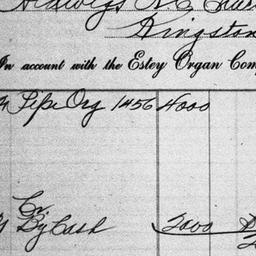 Hedwigs R.C. Chur
Kingston
In account with the Estey Organ Com
Pipe Org 1456 4000
Cr
By Cash 2000